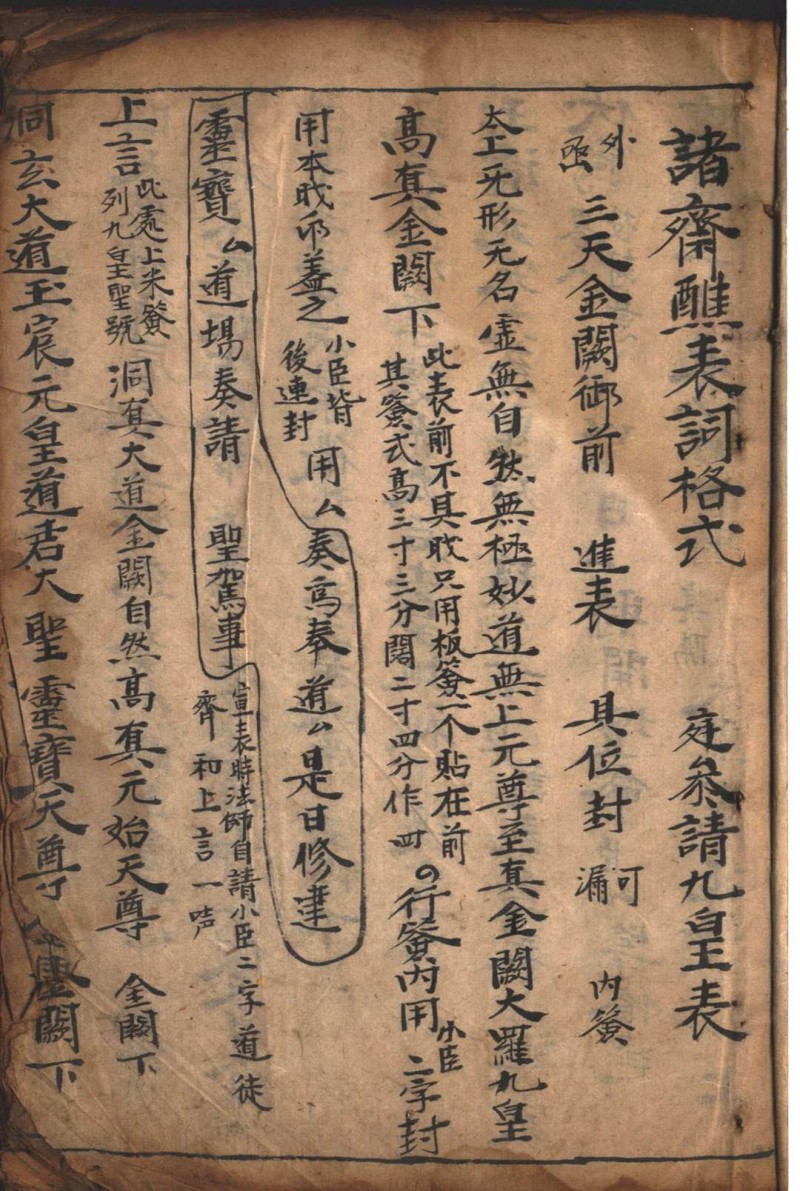 諸齋醮表詞格式 庭參請九皇表
外函 三天金闕御前 進表 具位封 可漏 內簽
太上旡形旡名虛無自然無極妙道無上元尊至真金闕大羅九皇
高真金闕下 此表前不具戝只用板簽一个貼在前 其簽式高三寸三分闊二寸四分作四 行簽內用小臣二字封
用本戝印蓋之 小臣皆後連封 用厶奏爲奉道厶是日修建
靈寶厶道場奏請 聖駕事 宣表時法師自請小臣二字道徒 齊和上言一声
上言 此處上朱簽列九皇聖號 洞真大道金闕自然高真元始天尊 金闕下
洞玄大道玉宸元皇道君大聖靈寶天尊 闕下